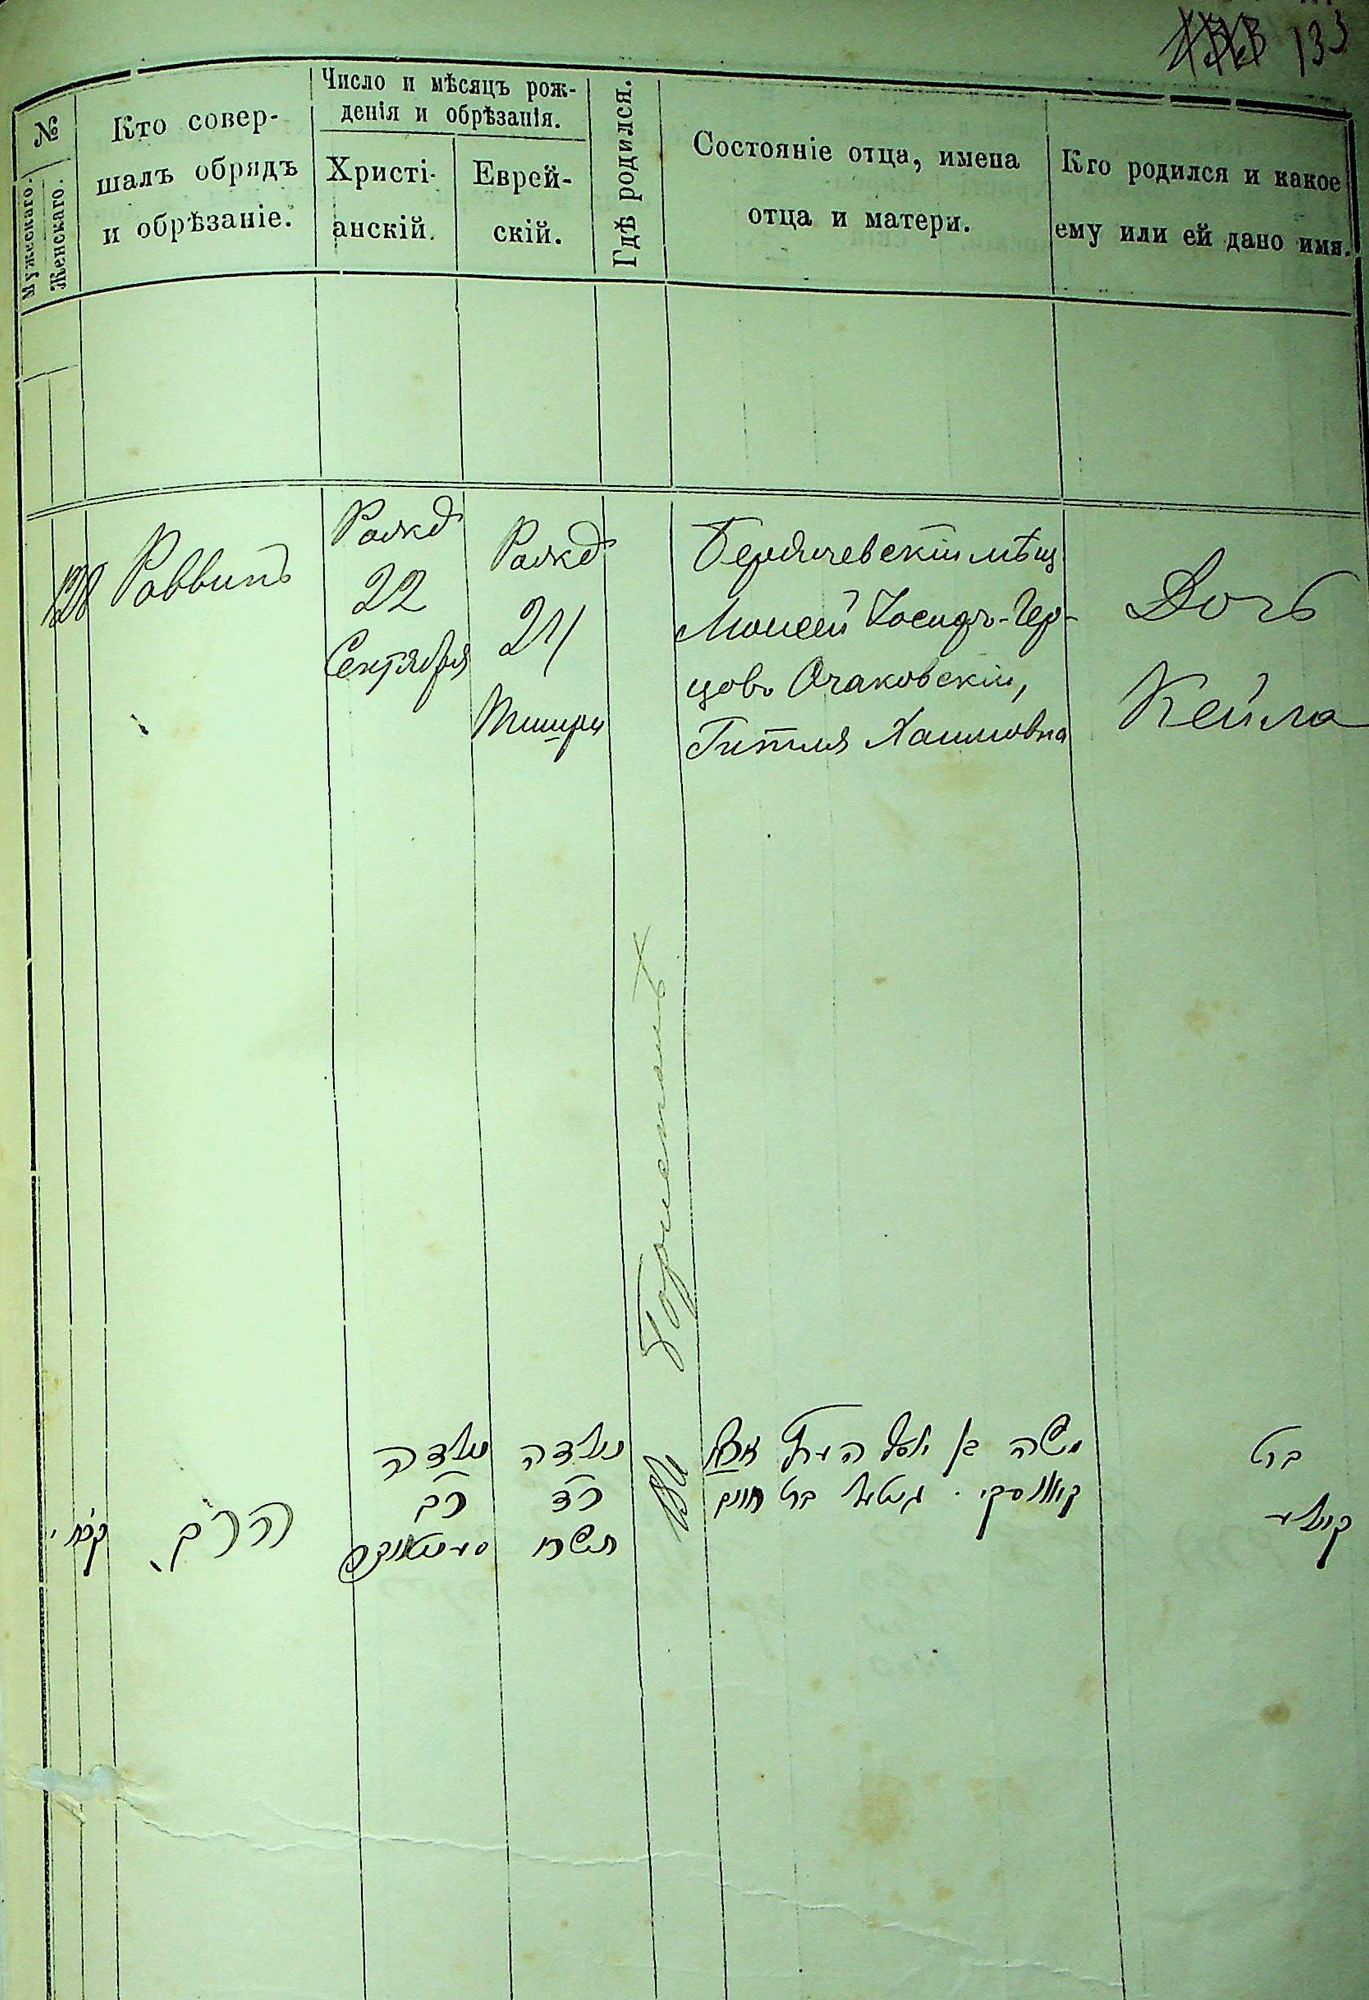 133
№
Мужескаго.
Женскаго.
Кто совер-
шалъ обрядъ
и обрѣзаніе.
Число и мѣсяцъ рож-
денія и обрѣзанія.
Христі-
анскій.
Еврей-
скій.
Гдѣ родился.
Состояніе отца, имена
отца и матери.
Кто родился и какое
ему или ей дано имя.
128
Раввинъ
Рожд
22
Сентября
Рожд
24
Тишри
Бердичевскій мѣщ
Моисей Іосифъ-Гер-
цовъ Очаковскій,
Гитля Хаимовна
Дочь
Кейла
קכח
הרב
נולדה
כב
נולדה
כד
תשרי
משה בן יוסף הערץ
גיטל בת חיים
בת
קיילע